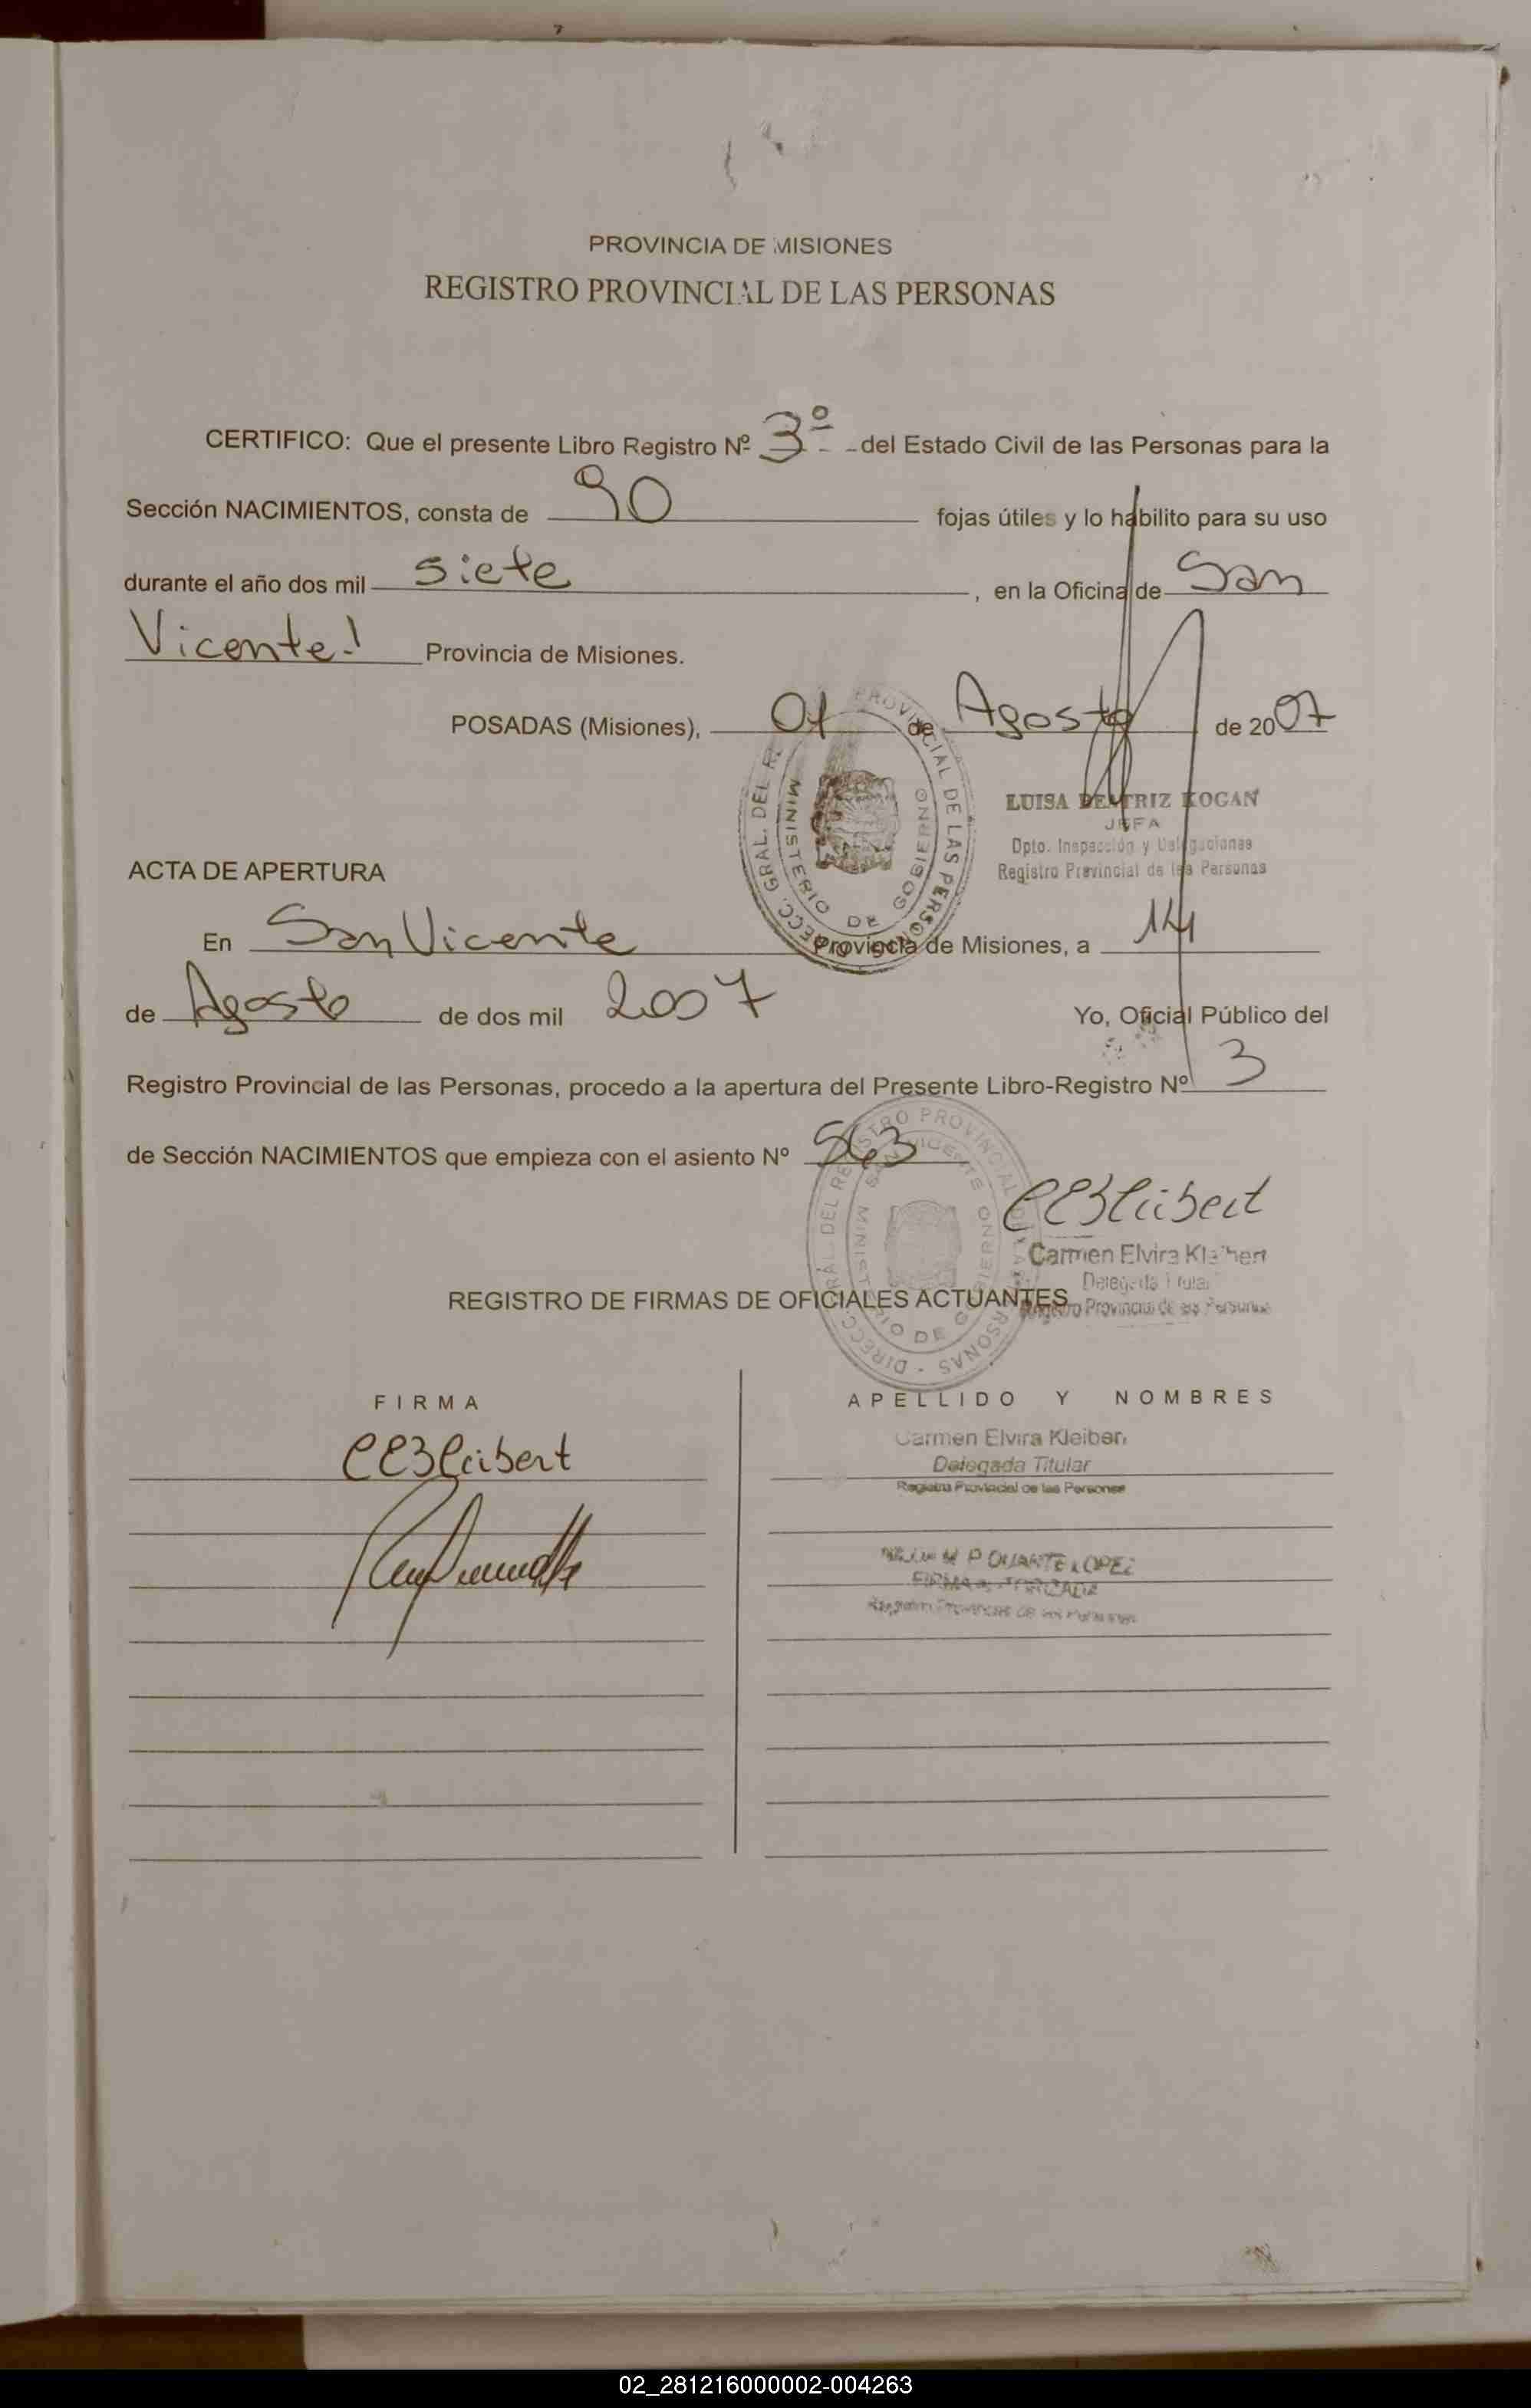 PROVINCIA DE MISIONES
REGISTRO PROVINCIAL DE LAS PERSONAS
CERTIFICO: Que el presente Libro Registro Nº 3º - - del Estado Civil de las Personas para la
Sección NACIMIENTOS, consta de 90 fojas útiles y lo habilito para su uso
durante el año dos mil siete, en la Oficina de San
Vicente.- Provincia de Misiones.
POSADAS (Misiones), 01 de Agosto de 2007
LUISA BEATRIZ KOGAN
JEFA
Dpto. Inspección y Delegaciones
Registro Provincial de las Personas
ACTA DE APERTURA
En San Vicente Provincia de Misiones, a 14
de Agosto de dos mil 2007 Yo, Oficial Público del
Registro Provincial de las Personas, procedo a la apertura del Presente Libro-Registro Nº 3
de Sección NACIMIENTOS que empieza con el asiento Nº 563
Carmen Elvira Kleibert
Delegada Titular
Registro Provincial de las Personas
REGISTRO DE FIRMAS DE OFICIALES ACTUANTES
FIRMA APELLIDO Y NOMBRES
Carmen Elvira Kleibert
Delegada Titular
Registro Provincial de las Personas
DUARTE LOPEZ
FIRMA AUTORIZADA
Registro Provincial de las Personas
02_281216000002-004263